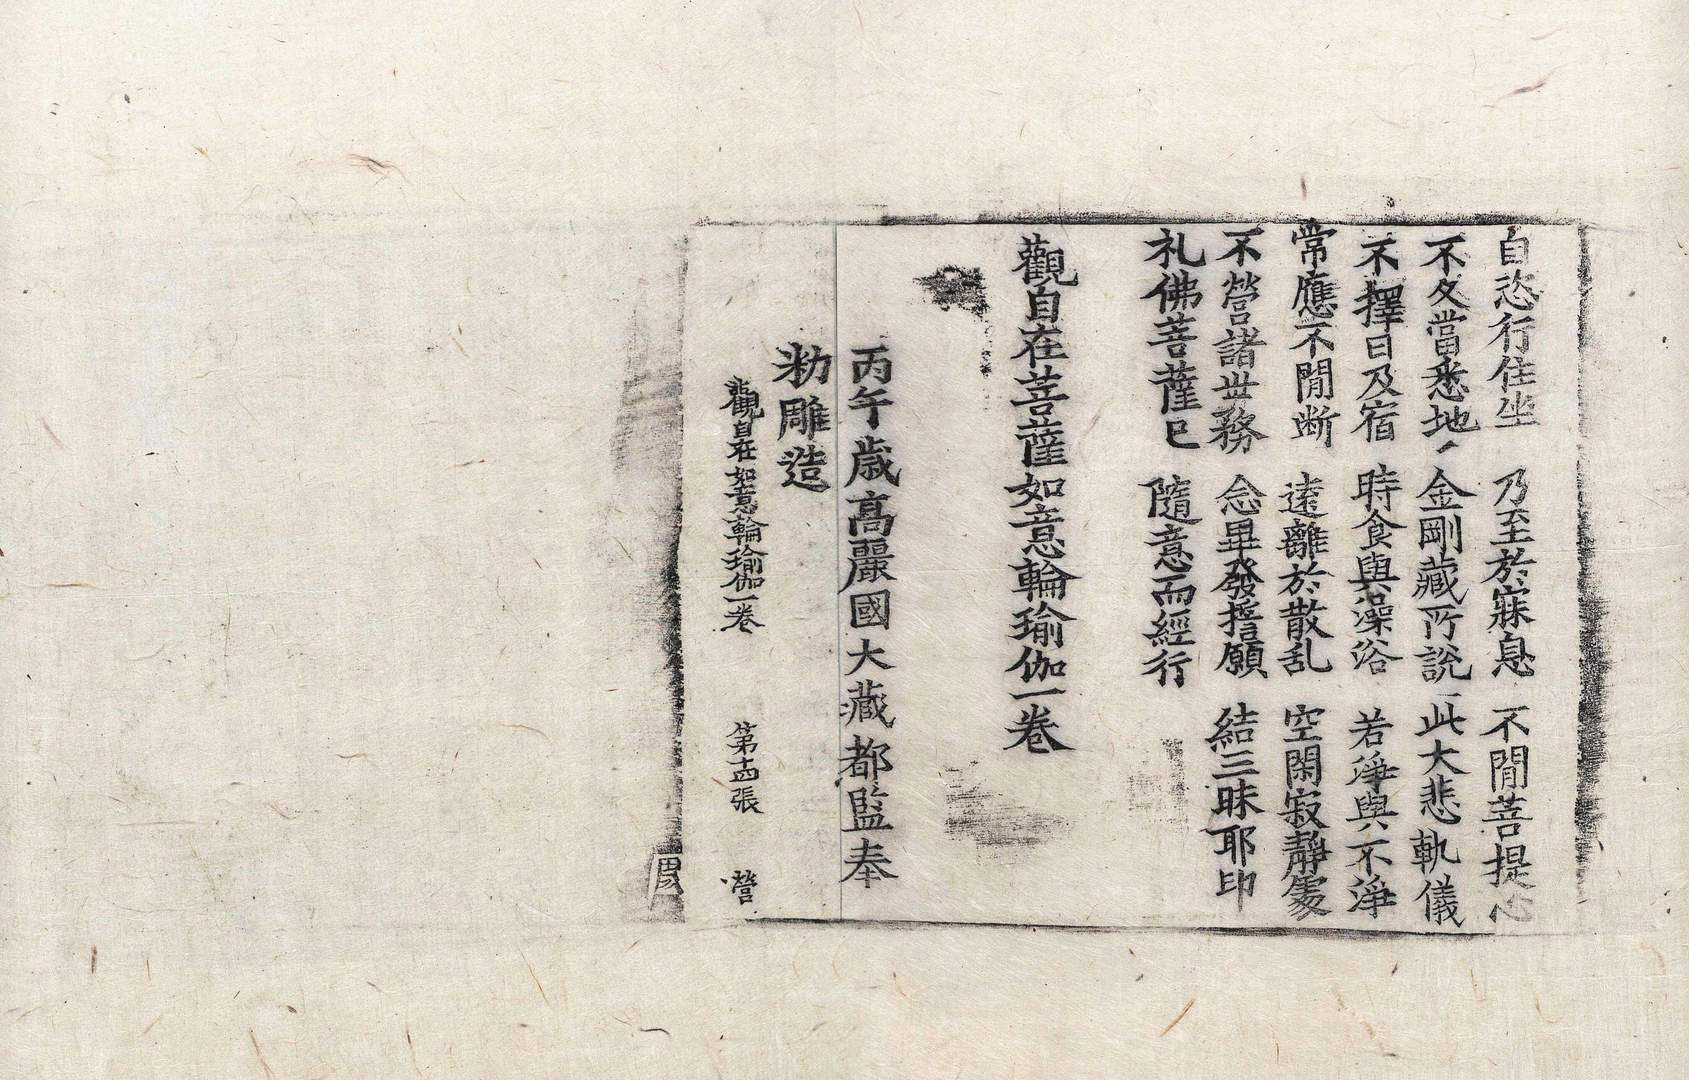 自恣行住坐 乃至於寐息 不閒菩提心
不久當悉地 金剛藏所說 此大悲軌儀
不擇日及宿 時食與澡浴 若淨與不淨
常應不閒断 遠離於散乱 空閑寂靜處
不營諸世務 念畢發擔願 結三昧耶印
礼佛菩薩已 隨意而經行
觀自在菩薩如意輪瑜伽一卷
丙午歳高麗國大藏都監奉
勑雕造
觀自在如意輪瑜伽一卷 第十四張 營